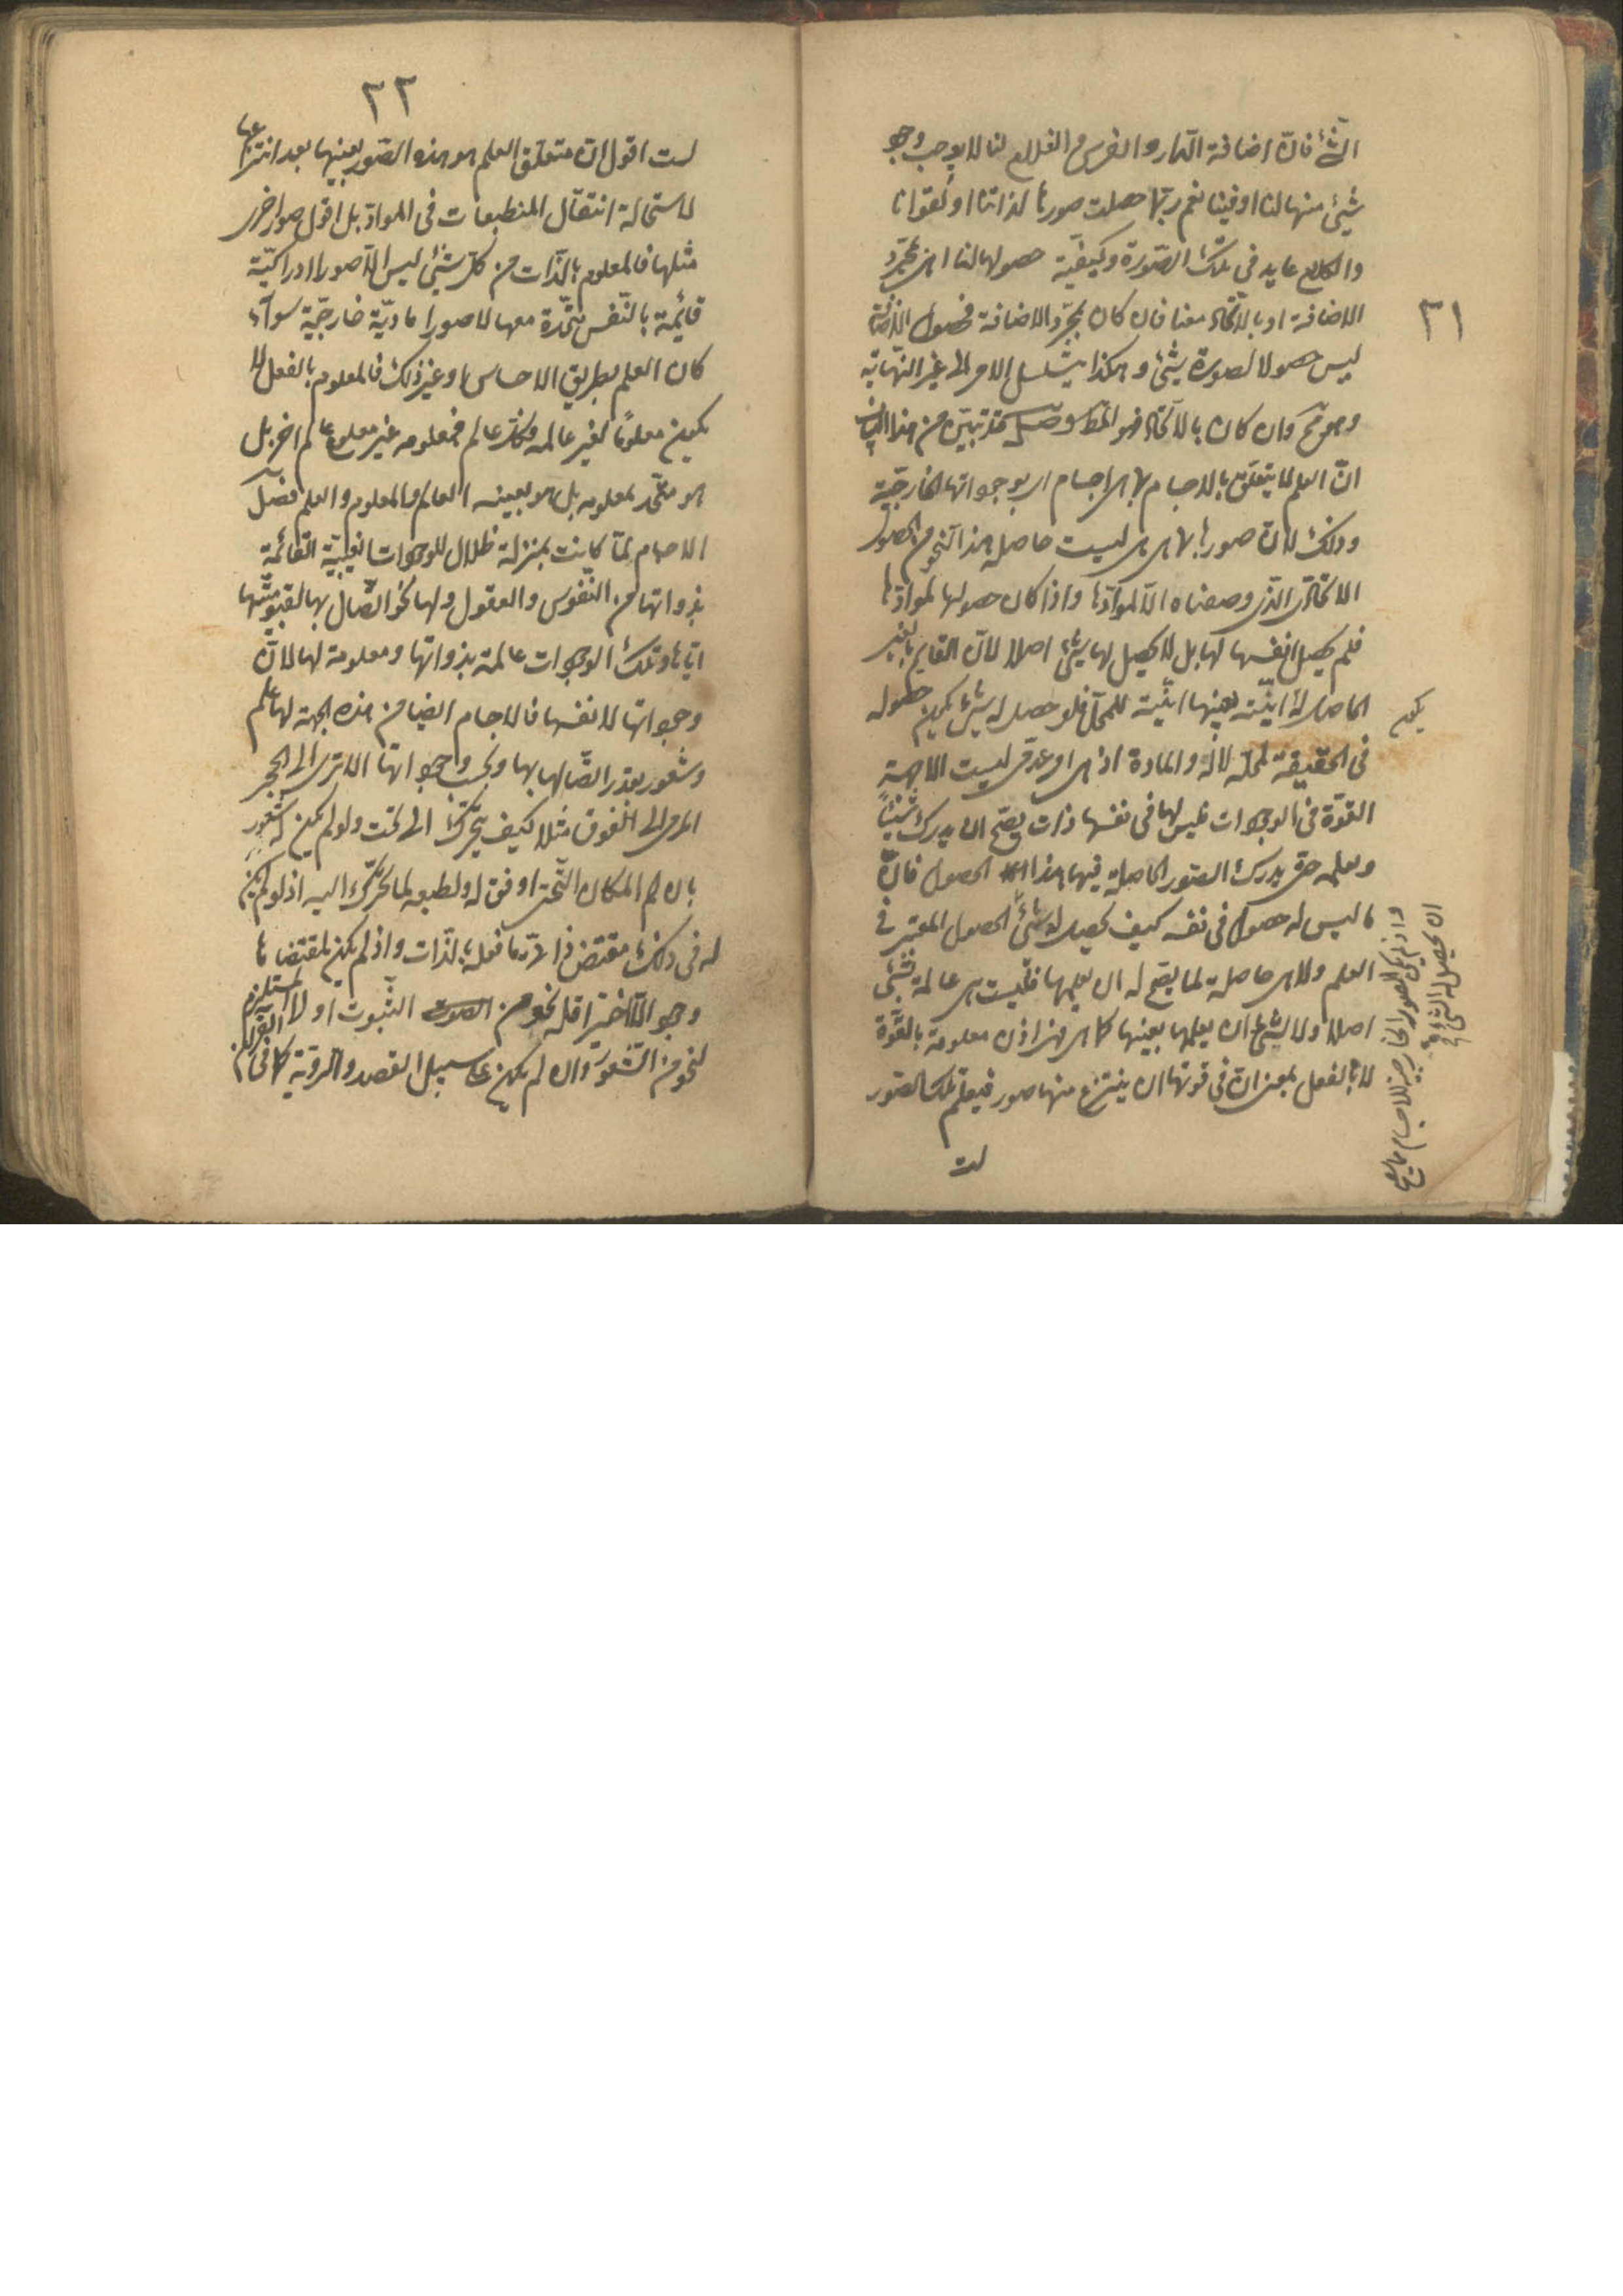 ٣١
الشئ فان اضافة الدار والفرس و الغلام لنا لا يوجب وجود
شيئ منها لنا او فينا نعم ربّما حصلت صورها لذاتنا او لقوانا
والكلام عايد فى تلك الصّورة وكيفيّة حصولها لنا اهى بمجرّد
الاضافة او بالاتّحاد معنا فان كان بمجرّد الاضافة فحصول الاضافة
ليس حصولا لصورة شيئ وهكذا يتسلسل الامر الى غير النّهاية
وهو مح وان كان بالاتّحاد فهو المط وصل قد تبيّن من هذا البيان
انّ العلم لا يتعلّق بالاجسام بما هى اجسام اى بوجوداتها الخارجيّة
وذلك لانّ صورها بما هى هى ليست حاصلة هذا النّحو من الحصول
الاتّحادى الّذى وصفناه الّا لموادّها واذا كان حصولها لموادّها
فلم يحصل انفسها لها بل لا يحصل لها شيئ اصلا لانّ القايم بالغير
الحاصل له انيّته بعينها انيّته للمحلّ فلو حصل له شيئ يكون حصوله
يكون
فى الحقيقة لمحلّه لا له والمادة اذ هى امر عدمى ليست الا جهة
القوّة فى الوجودات فليس لها فى نفسها ذات يصحّ ان يدرك شيئا
ويعلمه حتى يدرك الصّور الحاصلة فيها هذا الحصول فانّ
ما ليس له حصول فى نفسه كيف يحصل له شيئ الحصول المعتبر فى
العلم ولا هى حاصلة لما يصّح له ان يعلمها فليست هى عالمة بشئ
اصلا ولا لشيئ ان يعلمها بعينها كما هى فهى اذن معلومة بالقوّة
لا بالفعل بمعنى انّ فى قوتها ان ينتزع منها صور فيعلم تلك الصّور
واذ لم يكن للصور الخارجية للاجسام ما يصح
ان يحصل له الشئ
لست
٣٢
لست اقول انّ متعلّق العلم هو هذه الصّور بعينها بعد انتزاعها
لاستحالة انتقال المنطبعات فى الموادّ بل اقول صور اخرى
مثلها فالمعلوم بالذّات من كلّ شيئ ليس الّا صورا ادراكيّة
قائمة بالنّفس متّحدة معها لا صورا ماديّة خارجيّة سوآء
كان العلم بطريق الاحساس او غير ذلك فالمعلوم بالفعل لا
يكون معلوما لغير عالمه وكلّ عالم فمعلومه غير معلوم عالم اخر بل
هو متّحد بمعلومه بل هو بعينه العالم والمعلوم والعلم فصل
الاجسام لمّا كانت بمنزلة ظلال للوجودات الغيبيّة القائمة
بذواتها من النّفوس والعقول ولها نحو اتّصال بها لقيّوميّتها
ايّاها وتلك الوجودات عالمة بذواتها ومعلومة لها لانّ
وجوداتها لانفسها فالاجسام ايضا من هذه الجهة لها علم
وشعور بقدر اتّصالها بها وبحسب وجوداتها الا ترى الى الحجر
المرمى الى الفوق مثلا كيف يتحرّك الى تحت ولو لم يكن له شعور
بان هذا المكان التّحتى اوفق له ولطبعه لما تحرّك اليه اذ لو لم يكن
له فى ذلك مقتض ذاتى لما فعله بالذّات واذ لم يكن لمقتضاها
وجود الّا اخيرا فله نحو من الثبوت اولا المستلزم
لنحو من الشّعور وان لم يكن على سبيل القصد والرويّة كما فى